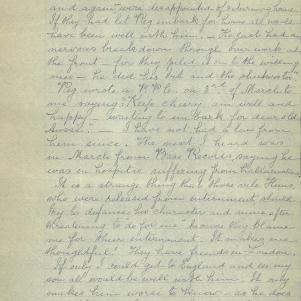 and again were disappointed of returning home
If they had let Reg embark for home all would
have been well with him. — He just had a
nervous breakdown through over work at
the front — for they piled it on to the willing
men — he did his bit and the shirkers too.
Reg wrote a P.P.C. on 3rd of March to
me saying: Keep cheery am well and
happy — waiting to embark for dear old
Aussie." — I have not had a line from
him since. The next I heard was
in March from "Base Records," saying he
was in hospital suffering from hallucinations.
It is a strange thing that those vile Huns,
who were released from internment should
try to defame his character and mine after
threatening to do for me because they blame
me for their internment. It makes me
thoughtful! They have friends in London.
If only I could get to England and see my
son all would be well with him. It only
makes him worse to know as he does